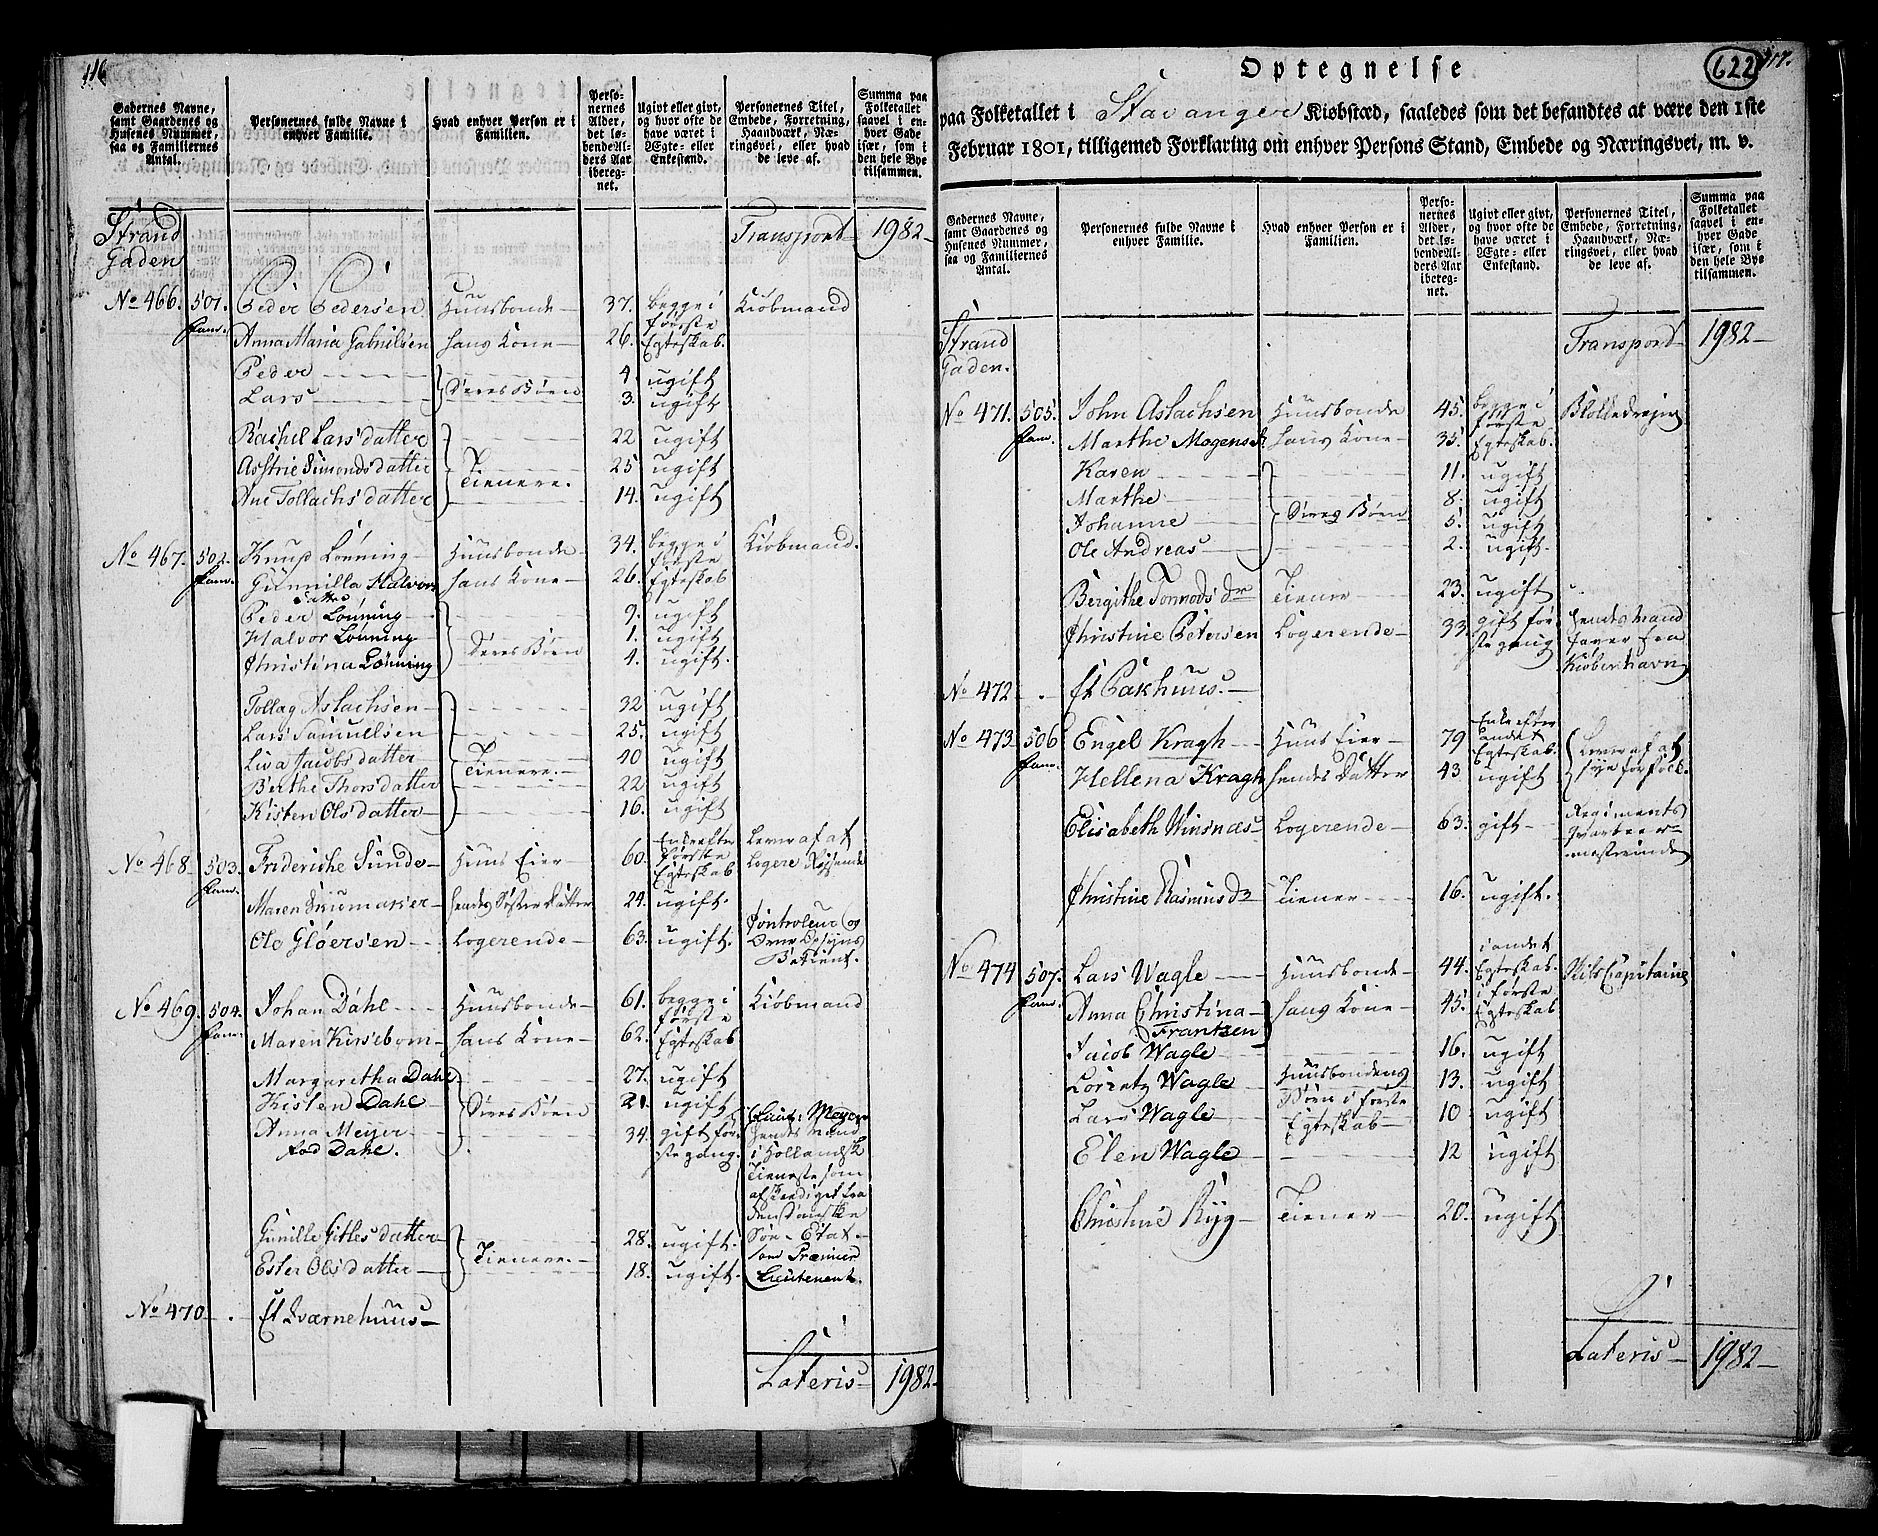 116
Gadernes Navne, samt Gaardenes og Husenes Nummer, saa og Familiernes Antal.
Personernes fulde Navne i enhver Familie.
Hvad enhver Person er i Familien.
Personernes Alder, det løbendeAlders Aar iberegnet.
Ugivt eller givt, og hvor ofte de have været i Ægte- eller Enkestand.
Personernes Titel, Embede, Forretning, Haandværk, Næringsvei, eller hvad de leve af.
Summa paa Folketallet saavel i enhver Gade især, som i den hele Bye tilsammen.
Strand Gaden
Transport 1982
No 466. 501. Fam. Peder Pedersen Huusbonde 37. begge i første Egteskab. Kiöbmand
Anna Maria Gabrielsen hans Kone 26.
Peder 4. ugift
Lars Deres Børn 3. ugift
Rachel Lars datter 22 ugift
Astrie Simonds datter Tienere. 25 ugift
Ane Tollachs datter 14. ugift
No 467. 502. Fam. Knud Lønning Huusbonde 34. begge i første Egteskab Kiöbmand.
Gunnilla Halvors datter hans Kone 26.
Peder Lønning 9. ugift
Halvor Lønning Deres Børn 1. ugift
Christina Lønning 4. ugift.
Tollag Aslachsen 32 ugift
Lars Samuelsen 25. ugift
Liva Jacobs datter Tienere. 40 ugift
Berthe Thors datter 22 ugift
Kisten Ols datter 16. ugift
No 468 503. Fam. Frideriche Sunde Huus Eier 60. Enke efter første Egteskab Lever af at Logere Reisende
Maren hendes Søster Datter 24. ugift.
Ole Gløersen Logerende 63. ugift. Controleur og
No 469. 504. Fam. Johan Dahl Huusbonde 61. begge i første Egteskab Kiöbmand
Maren Kirsebom hans Kone 62.
Margaretha Dahl 27. ugift
Kisten Dahl Deres Børn 21. ugift
Anna Meyer fød Dahl. 34. gift første gang. Lieut: Meyer hendes Mand i Hollandsk Tieneste som
Gunille Gitles datter Tienere. 28. ugift.
Ester Ols datter 18. ugift.
Søe-Etat som Premier Lieutenent.
No 470 Et Qværnehuus
Lateris 1982
Optegnelse
622 117.
paa Folketallet i Stavanger Kiøbstæd, saaledes som det befandtes at være den 1ste
Februar 1801, tilligemed Forklaring om enhver Persons Stand, Embede og Næringsvei, m. v.
Gadernes Navne, samt Gaardenes og Husenes Nummer, saa og Familiernes Antal.
Personernes fulde Navne i enhver Familie.
Hvad enhver Person er i Familien.
Personernes Alder, det løbendeAlders Aar iberegnet.
Ugivt eller givt, og hvor ofte de have været i Ægte- eller Enkestand.
Personernes Titel, Embede, Forretning, Haandværk, Næringsvei, eller hvad de leve af.
Summa paa Folketallet saavel i enhver Gade især, som i den hele Bye tilsammen.
Strand Gaden.
Transport 1982
No 471. 505. Fam. John Aslachsen Huusbonde 45. begge i første Egteskab. Blokkedreyer
Marthe Mogens dr. hans Kone 35.
Karen 11. ugift
Marthe 8. ugift
Johanne Deres Børn 5. ugift
Ole Andreas 2. ugift.
Bergithe Tormods dr Tiener 23. ugift
Christine Petersen Logerende 33. gift første gang hendes Mand farer fra Kiöbenhavn
No 472 Et Pakhuus.
No 473 506 Fam. Engel Kragh Huus Eier 79 Enke efter andet Egteskab Lever af at sye for folk.
Hellena Kragh hendes Datter 43 ugift
Elisabeth Winsnæs Logerende 63. gift Regiments Qvarteermesterinde
Christine Rasmus Dr Tiener 16. ugift.
No 474 507. Fam. Lars Wagle Huusbonde 44. i andet Egteskab. Skibs Capitaine
Anna Christina Frantzen hans Kone 45. i første Egteskab
Jacob Wagle 16. ugift
Lorentz Wagle Huusbondens Børn i første Egteskab 13. ugift
Lars Wagle 10 ugift
Elen Wagle 12 ugift
Christine Ryg Tiener 20. ugift
Lateris 1982